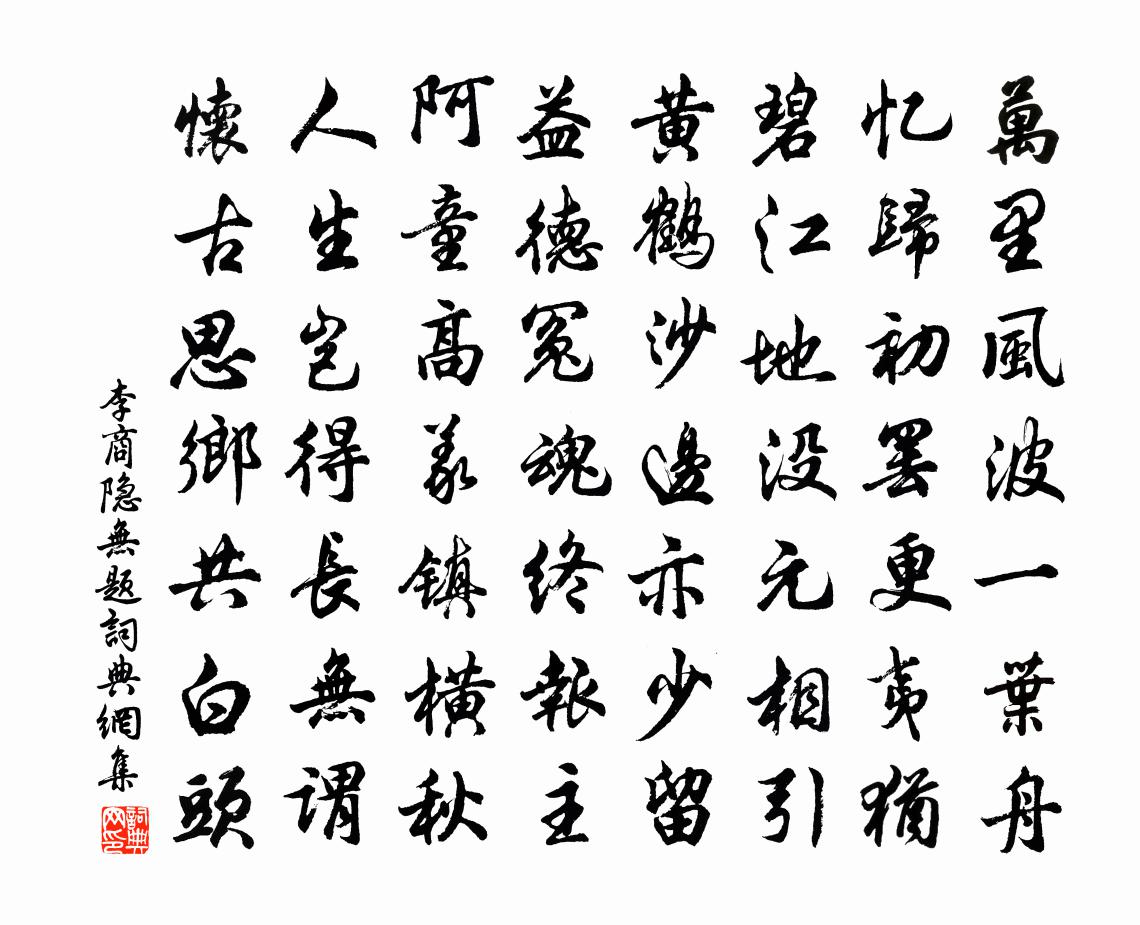 萬里風波一葉舟
忆歸初罢更夷猶
碧江地没元相引
黄鶴沙邊亦少留
益德冤魂终報主
阿童高義镇橫秋
人生岂得長無謂
懷古思鄉共白頭
李商隐無题詞典網集
詞典网印